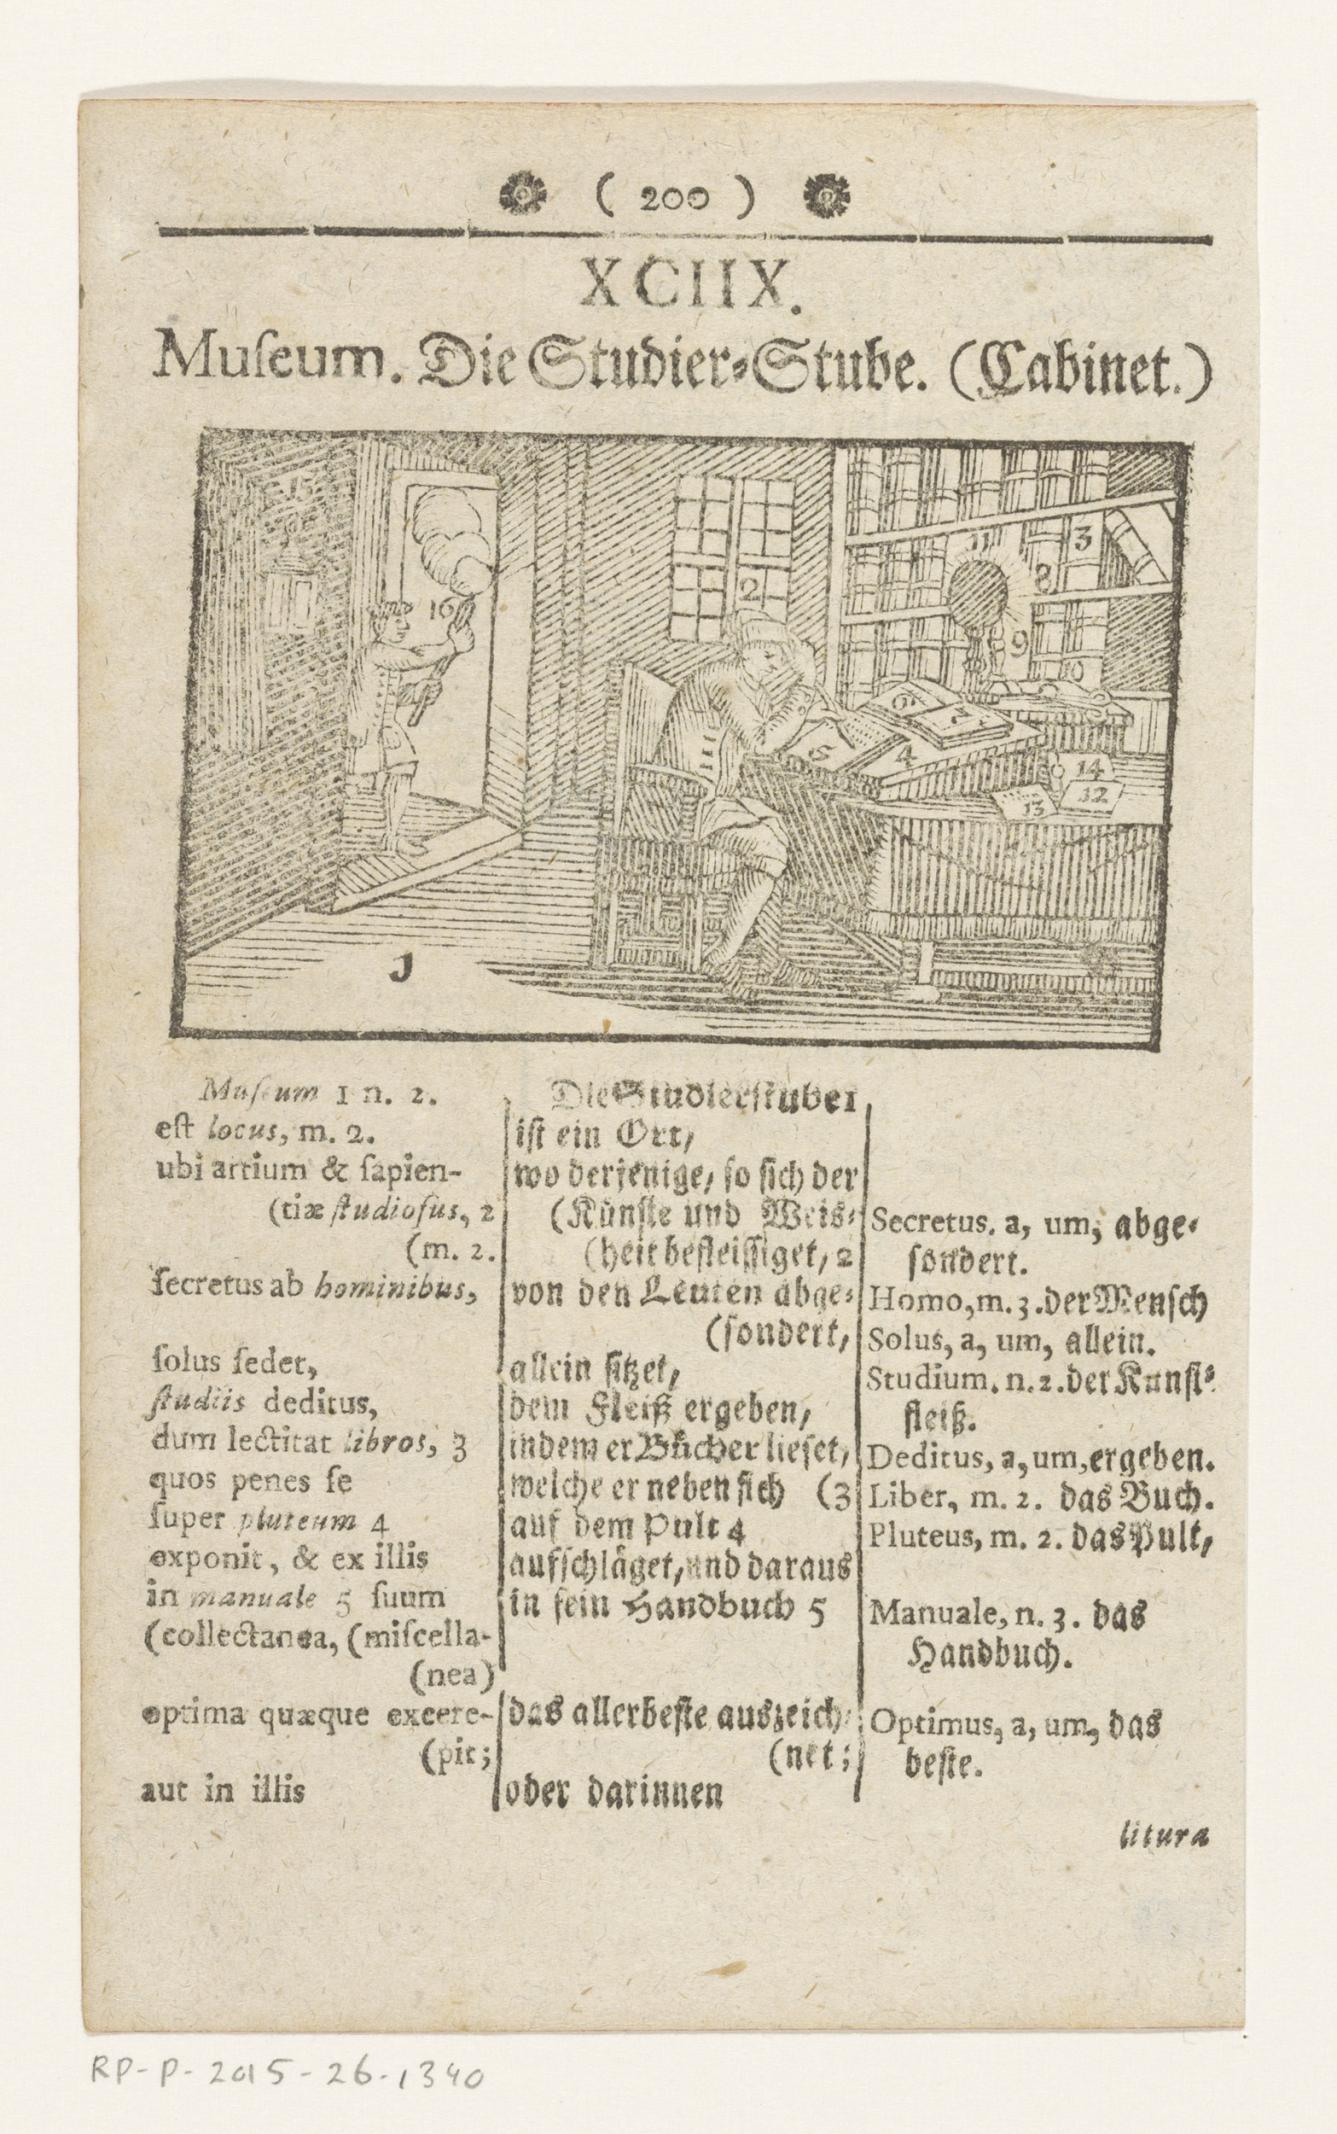 ( 200 )
XCIIX.
Muſeum. Die Studier⸗Stube. (Cabinet.)
15
16
2
11
3
8
9
10
6
7
5
4
14
13
12
1
Muſeum 1 n. 2.
eſt locus, m. 2.
ubi artium & ſapien-
(tiæ ſtudioſus, 2
(m. 2.
ſecretus ab hominibus,
ſolus ſedet,
ſtudiis deditus,
dum lectitat libros, 3
quos penes ſe
ſuper pluteum 4
exponit, & ex illis
in manuale 5 ſuum
(collectanea, (miſcella-
(nea)
optima quæque excere-
(pit;
aut in illis
Die Studierſtube 1
iſt ein Ort/
wo derjenige/ ſo ſich der
(Künſte und Weis⸗
(heit befleiſſiget/ 2
von den Leuten abge⸗
(ſondert/
allein ſitzet/
dem Fleiß ergeben/
indem er Bücher lieſet/
welche er neben ſich (3
auf dem Pult 4
aufſchläget/ und daraus
in ſein Handbuch 5
das allerbeſte auszeich⸗
(net;
oder darinnen
Secretus, a, um, abge⸗
ſondert.
Homo, m. 3. der Menſch
Solus, a, um, allein.
Studium. n. 2. der Kunſt⸗
fleiß.
Deditus, a, um, ergeben.
Liber, m. 2. das Buch.
Pluteus, m. 2. das Pult/
Manuale, n. 3. das
Handbuch.
Optimus, a, um, das
beſte.
litura
RP-P-2015-26-1340